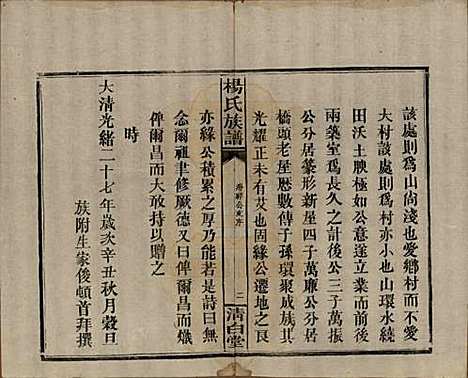 該處則爲山尙淺也愛鄉村而不愛
大村該處則爲村亦小也山環水繞
田沃土腴極如公意遂立業而前後
兩築室爲長久之計後公三子萬能
公分居篆形新屋四子萬廉公分居
橋頭老屋厯數傳子孫環聚成族則
光耀正未有艾也固緣公遷地之良
亦緣公積累之厚乃能若是詩曰無
念爾祖聿修厥德又曰俾爾昌而熾
俾爾昌而大敢持以贈之
時
大清光緒二十七年歲次辛丑秋月穀旦
族附生家俊頓首拜撰
楊氏族譜
公支序
二
清白堂